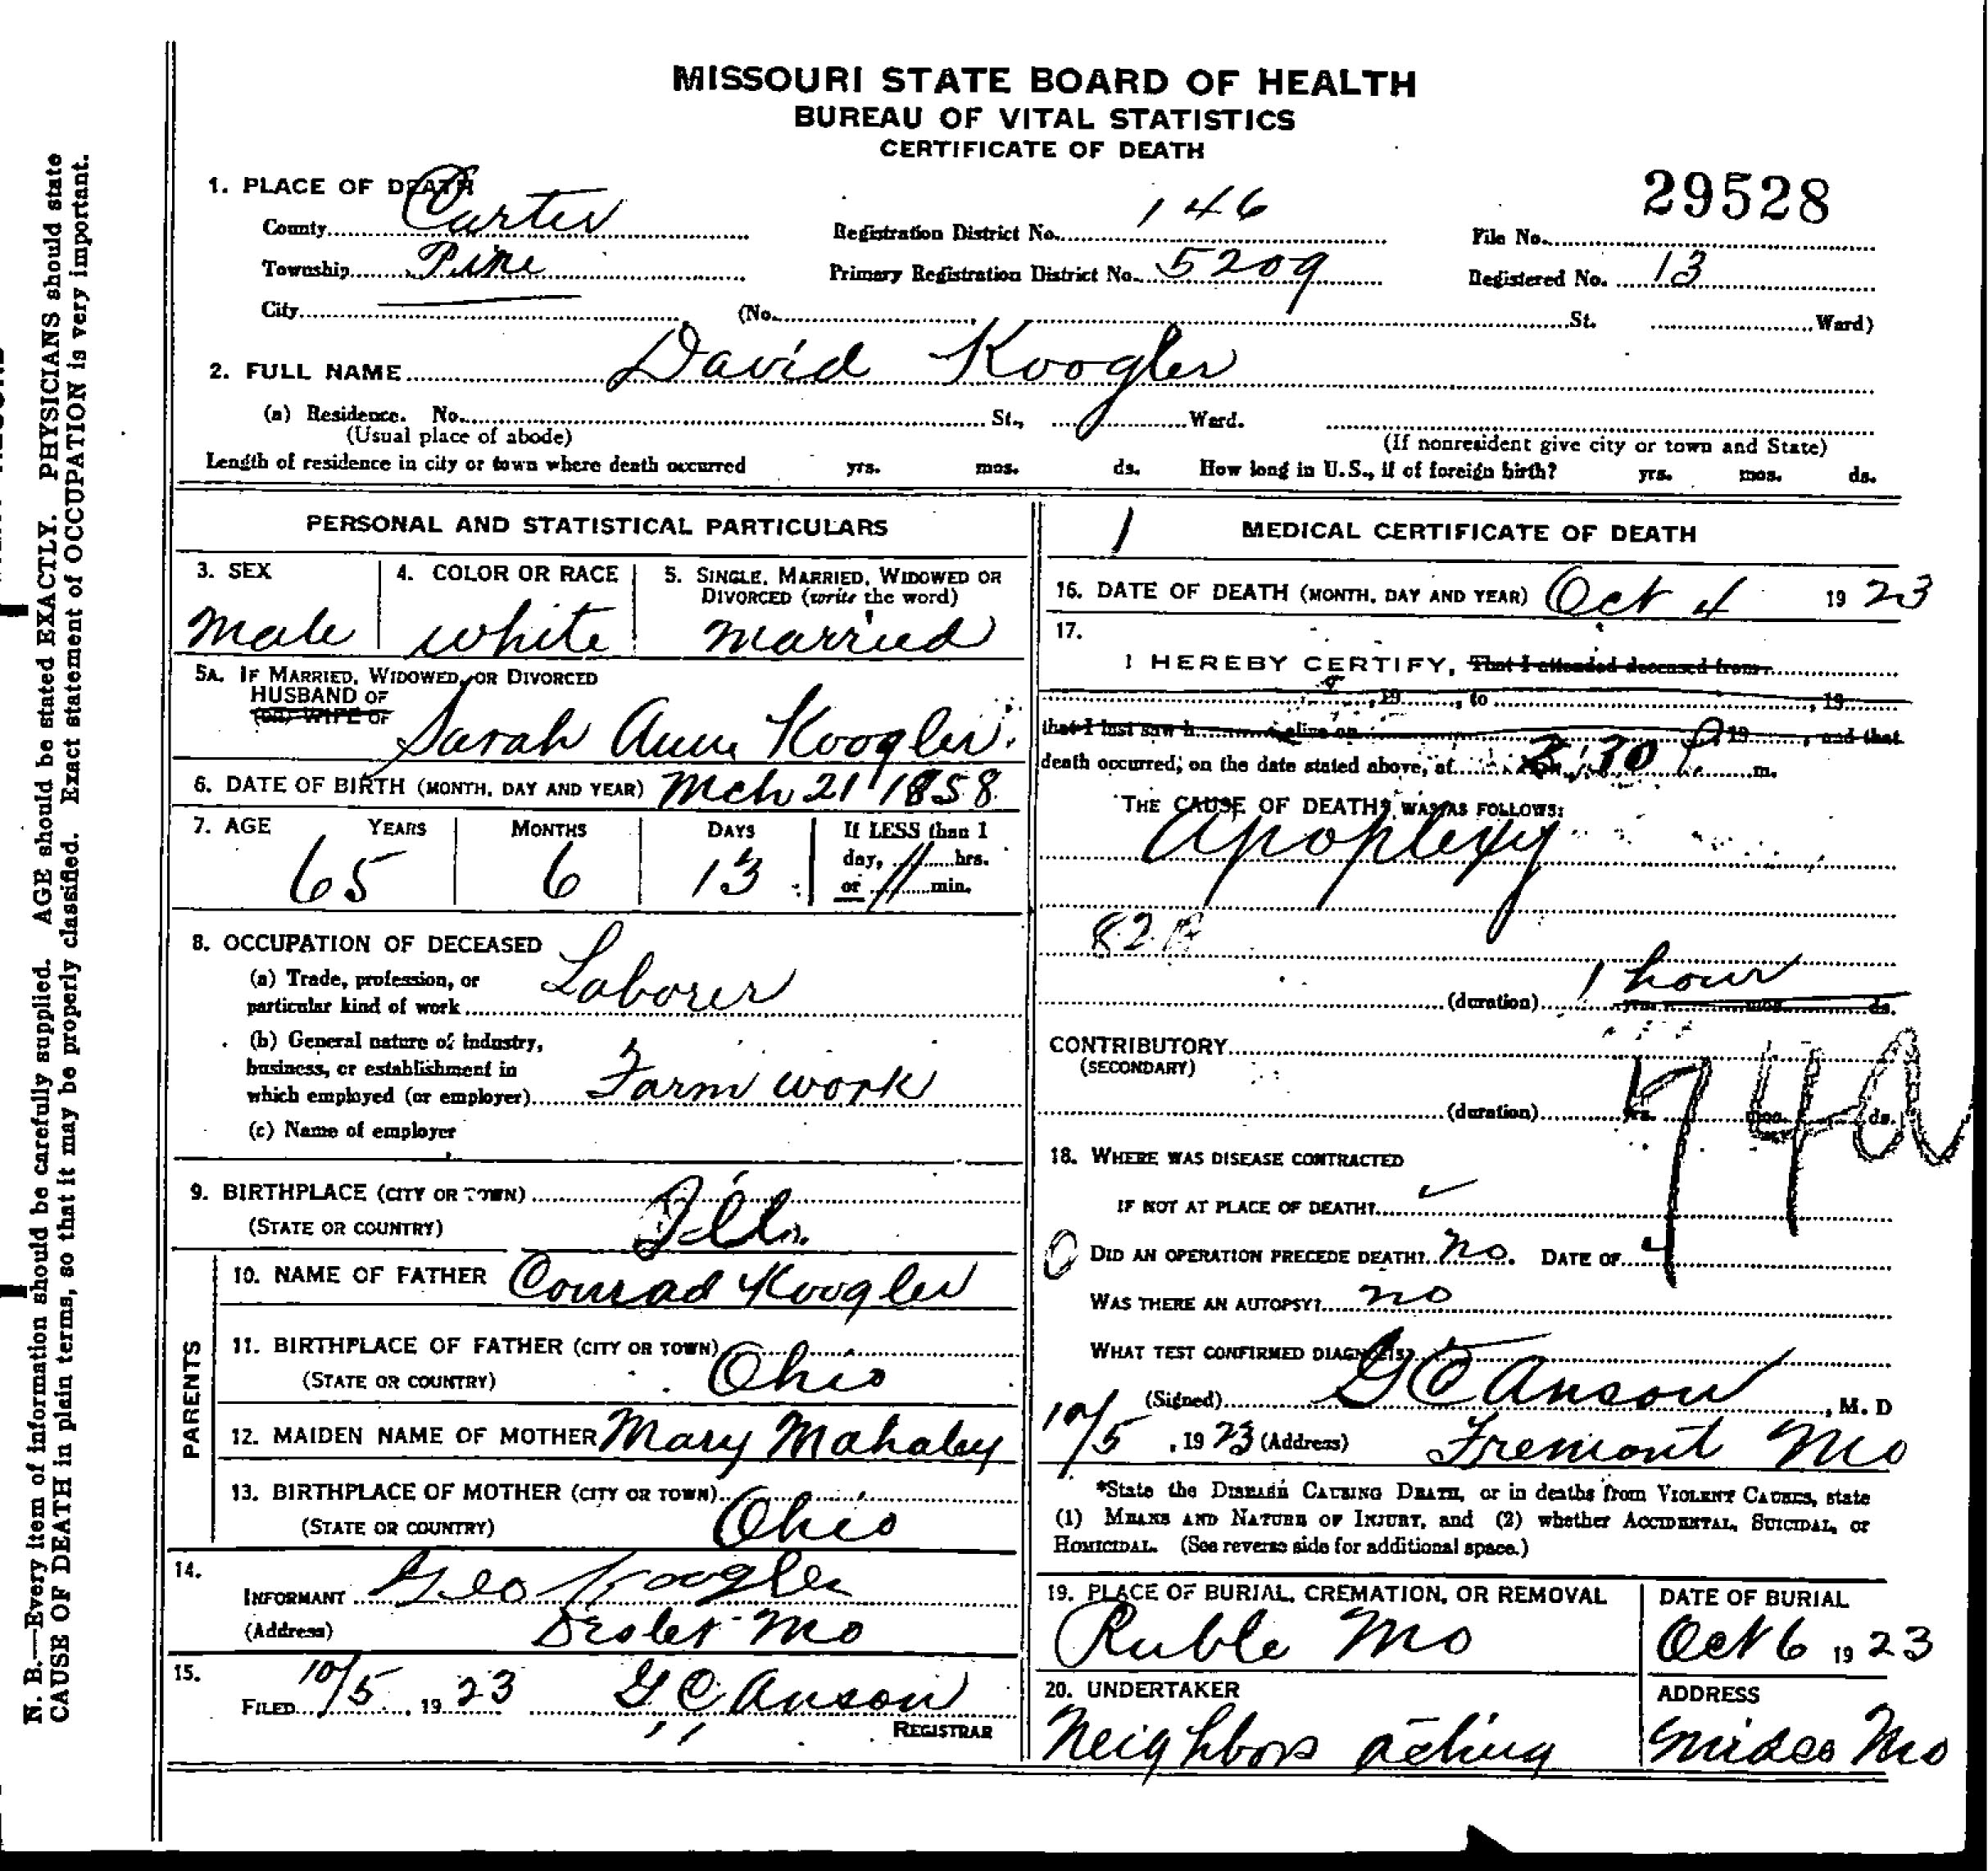 MISSOURI STATE BOARD OF HEALTH
BUREAU OF VITAL STATISTICS
CERTIFICATE OF DEATH
29528
1. PLACE OF DEATH
County Carter Registration District No. 146 File No.
Township Pine Primary Registration District No. 5209 Registered No. 13
City (No. St. Ward)
2. FULL NAME David Koogler
(a) Residence. No. St., Ward.
(Usual place of abode) (If nonresident give city or town and State)
Length of residence in city or town where death occurred yrs. mos. ds. How long in U.S., if of foreign birth? yrs. mos. ds.
PERSONAL AND STATISTICAL PARTICULARS
3. SEX 4. COLOR OR RACE 5. SINGLE, MARRIED, WIDOWED OR
DIVORCED (write the word)
Male white married
5A. IF MARRIED, WIDOWED, OR DIVORCED
HUSBAND OF
(OR) WIFE OF Sarah Ann Koogler.
6. DATE OF BIRTH (MONTH, DAY AND YEAR) Mch 21 1858
7. AGE YEARS MONTHS DAYS If LESS than 1
day, hrs.
65 6 13 or min.
8. OCCUPATION OF DECEASED
(a) Trade, profession, or
particular kind of work Laborer
(b) General nature of industry,
business, or establishment in
which employed (or employer) Farm work
(c) Name of employer
9. BIRTHPLACE (CITY OR TOWN)
(STATE OR COUNTRY) Ills.
PARENTS
10. NAME OF FATHER Conrad Koogler
11. BIRTHPLACE OF FATHER (CITY OR TOWN)
(STATE OR COUNTRY) Ohio
12. MAIDEN NAME OF MOTHER Mary Mahaley
13. BIRTHPLACE OF MOTHER (CITY OR TOWN)
(STATE OR COUNTRY) Ohio
14.
INFORMANT Geo Koogler
(Address) Mo
15.
FILED 10/5, 1923 G C Anson
REGISTRAR
1 MEDICAL CERTIFICATE OF DEATH
16. DATE OF DEATH (MONTH, DAY AND YEAR) Oct 4 1923
17.
I HEREBY CERTIFY, That I attended deceased from
, 19, to , 19
that I last saw h alive on , 19, and that
death occurred, on the date stated above, at :30 P m.
THE CAUSE OF DEATH* WAS AS FOLLOWS:
Apoplexy
82
(duration) 1 hour yrs. mos. ds.
CONTRIBUTORY
(SECONDARY)
(duration) yrs. mos. ds.
74a
18. WHERE WAS DISEASE CONTRACTED
IF NOT AT PLACE OF DEATH?
DID AN OPERATION PRECEDE DEATH? no. DATE OF
WAS THERE AN AUTOPSY? no
WHAT TEST CONFIRMED DIAGNOSIS?
(Signed) G C Anson, M. D
10/5, 1923 (Address) Fremont Mo
*State the DISEASE CAUSING DEATH, or in deaths from VIOLENT CAUSES, state
(1) MEANS AND NATURE OF INJURY, and (2) whether ACCIDENTAL, SUICIDAL, or
HOMICIDAL. (See reverse side for additional space.)
19. PLACE OF BURIAL, CREMATION, OR REMOVAL DATE OF BURIAL
Ruble Mo Oct 6 1923
20. UNDERTAKER ADDRESS
Neighbors acting Mo
N. B.—Every item of information should be carefully supplied. AGE should be stated EXACTLY. PHYSICIANS should state
CAUSE OF DEATH in plain terms, so that it may be properly classified. Exact statement of OCCUPATION is very important.